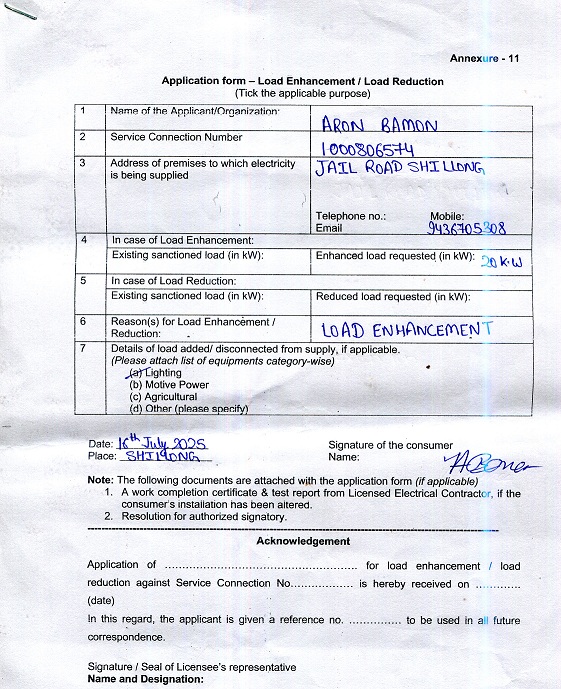 Annexure - 11
Application form – Load Enhancement / Load Reduction
(Tick the applicable purpose)
1 Name of the Applicant/Organization: ARON RAMON
2 Service Connection Number 1000806574
3 Address of premises to which electricity is being supplied JAIL ROAD SHILLONG
Telephone no.: Mobile:
Email 9436705308
4 In case of Load Enhancement:
Existing sanctioned load (in kW): Enhanced load requested (in kW): 20 K.W
5 In case of Load Reduction:
Existing sanctioned load (in kW): Reduced load requested (in kW):
6 Reason(s) for Load Enhancement / Reduction: LOAD ENHANCEMENT
7 Details of load added/ disconnected from supply, if applicable.
(Please attach list of equipments category-wise)
(a) Lighting
(b) Motive Power
(c) Agricultural
(d) Other (please specify)
Date: 18th July 2025 Signature of the consumer
Place: SHILLONG Name:
Note: The following documents are attached with the application form (if applicable)
1. A work completion certificate & test report from Licensed Electrical Contractor, if the
consumer's installation has been altered.
2. Resolution for authorized signatory.
Acknowledgement
Application of ................................................... for load enhancement / load
reduction against Service Connection No................. is hereby received on ............
(date)
In this regard, the applicant is given a reference no. .............. to be used in all future
correspondence.
Signature / Seal of Licensee's representative
Name and Designation: